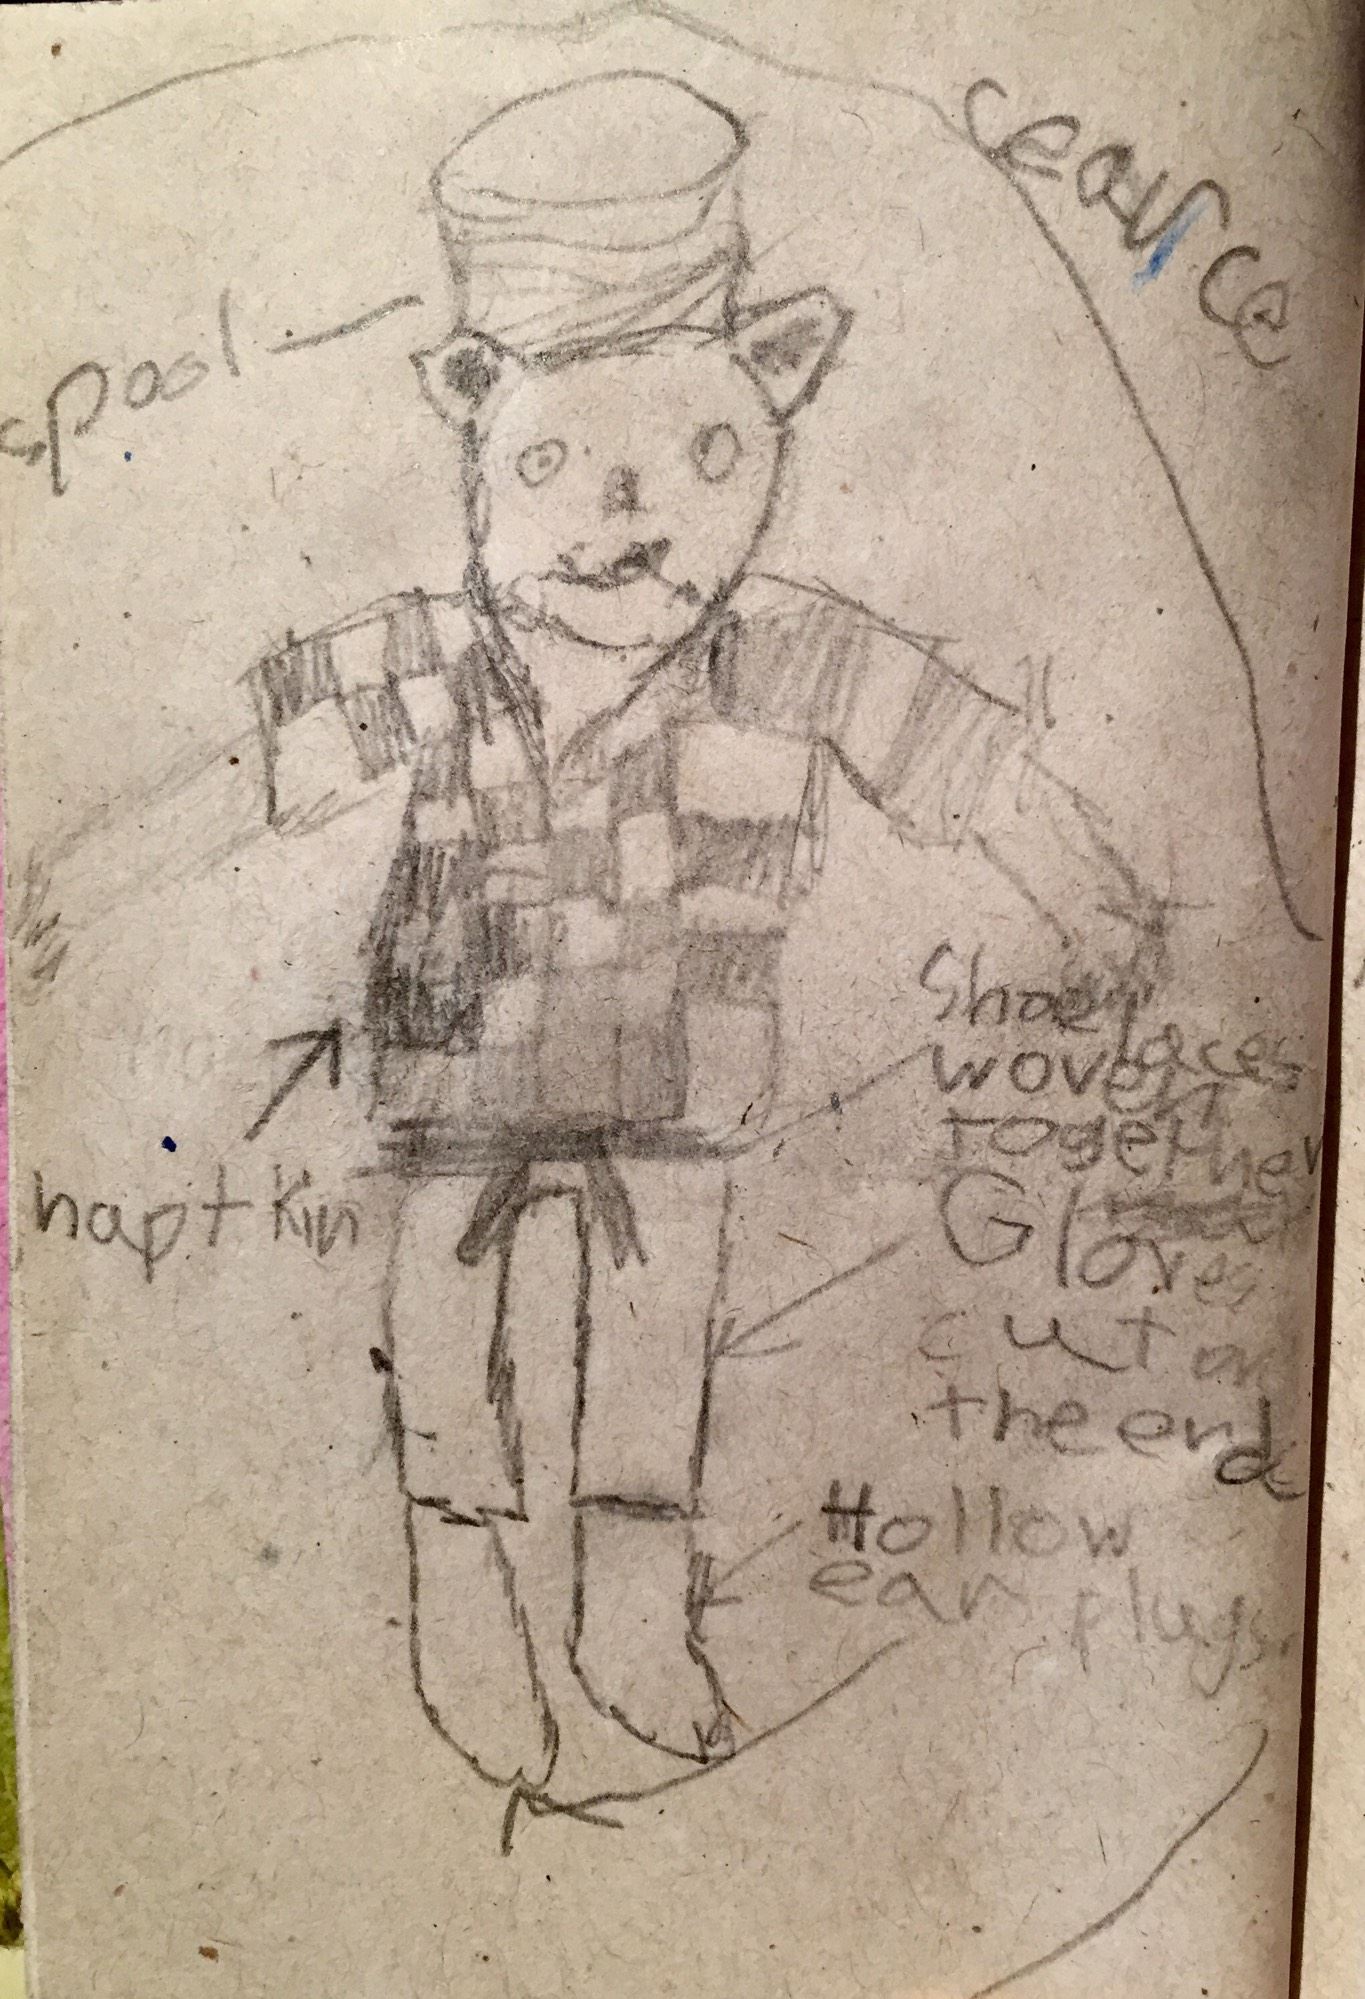 spool
naptkin
Shoelaces
woven
together
Gloves
cut on
the end
Hollow
ear plugs.